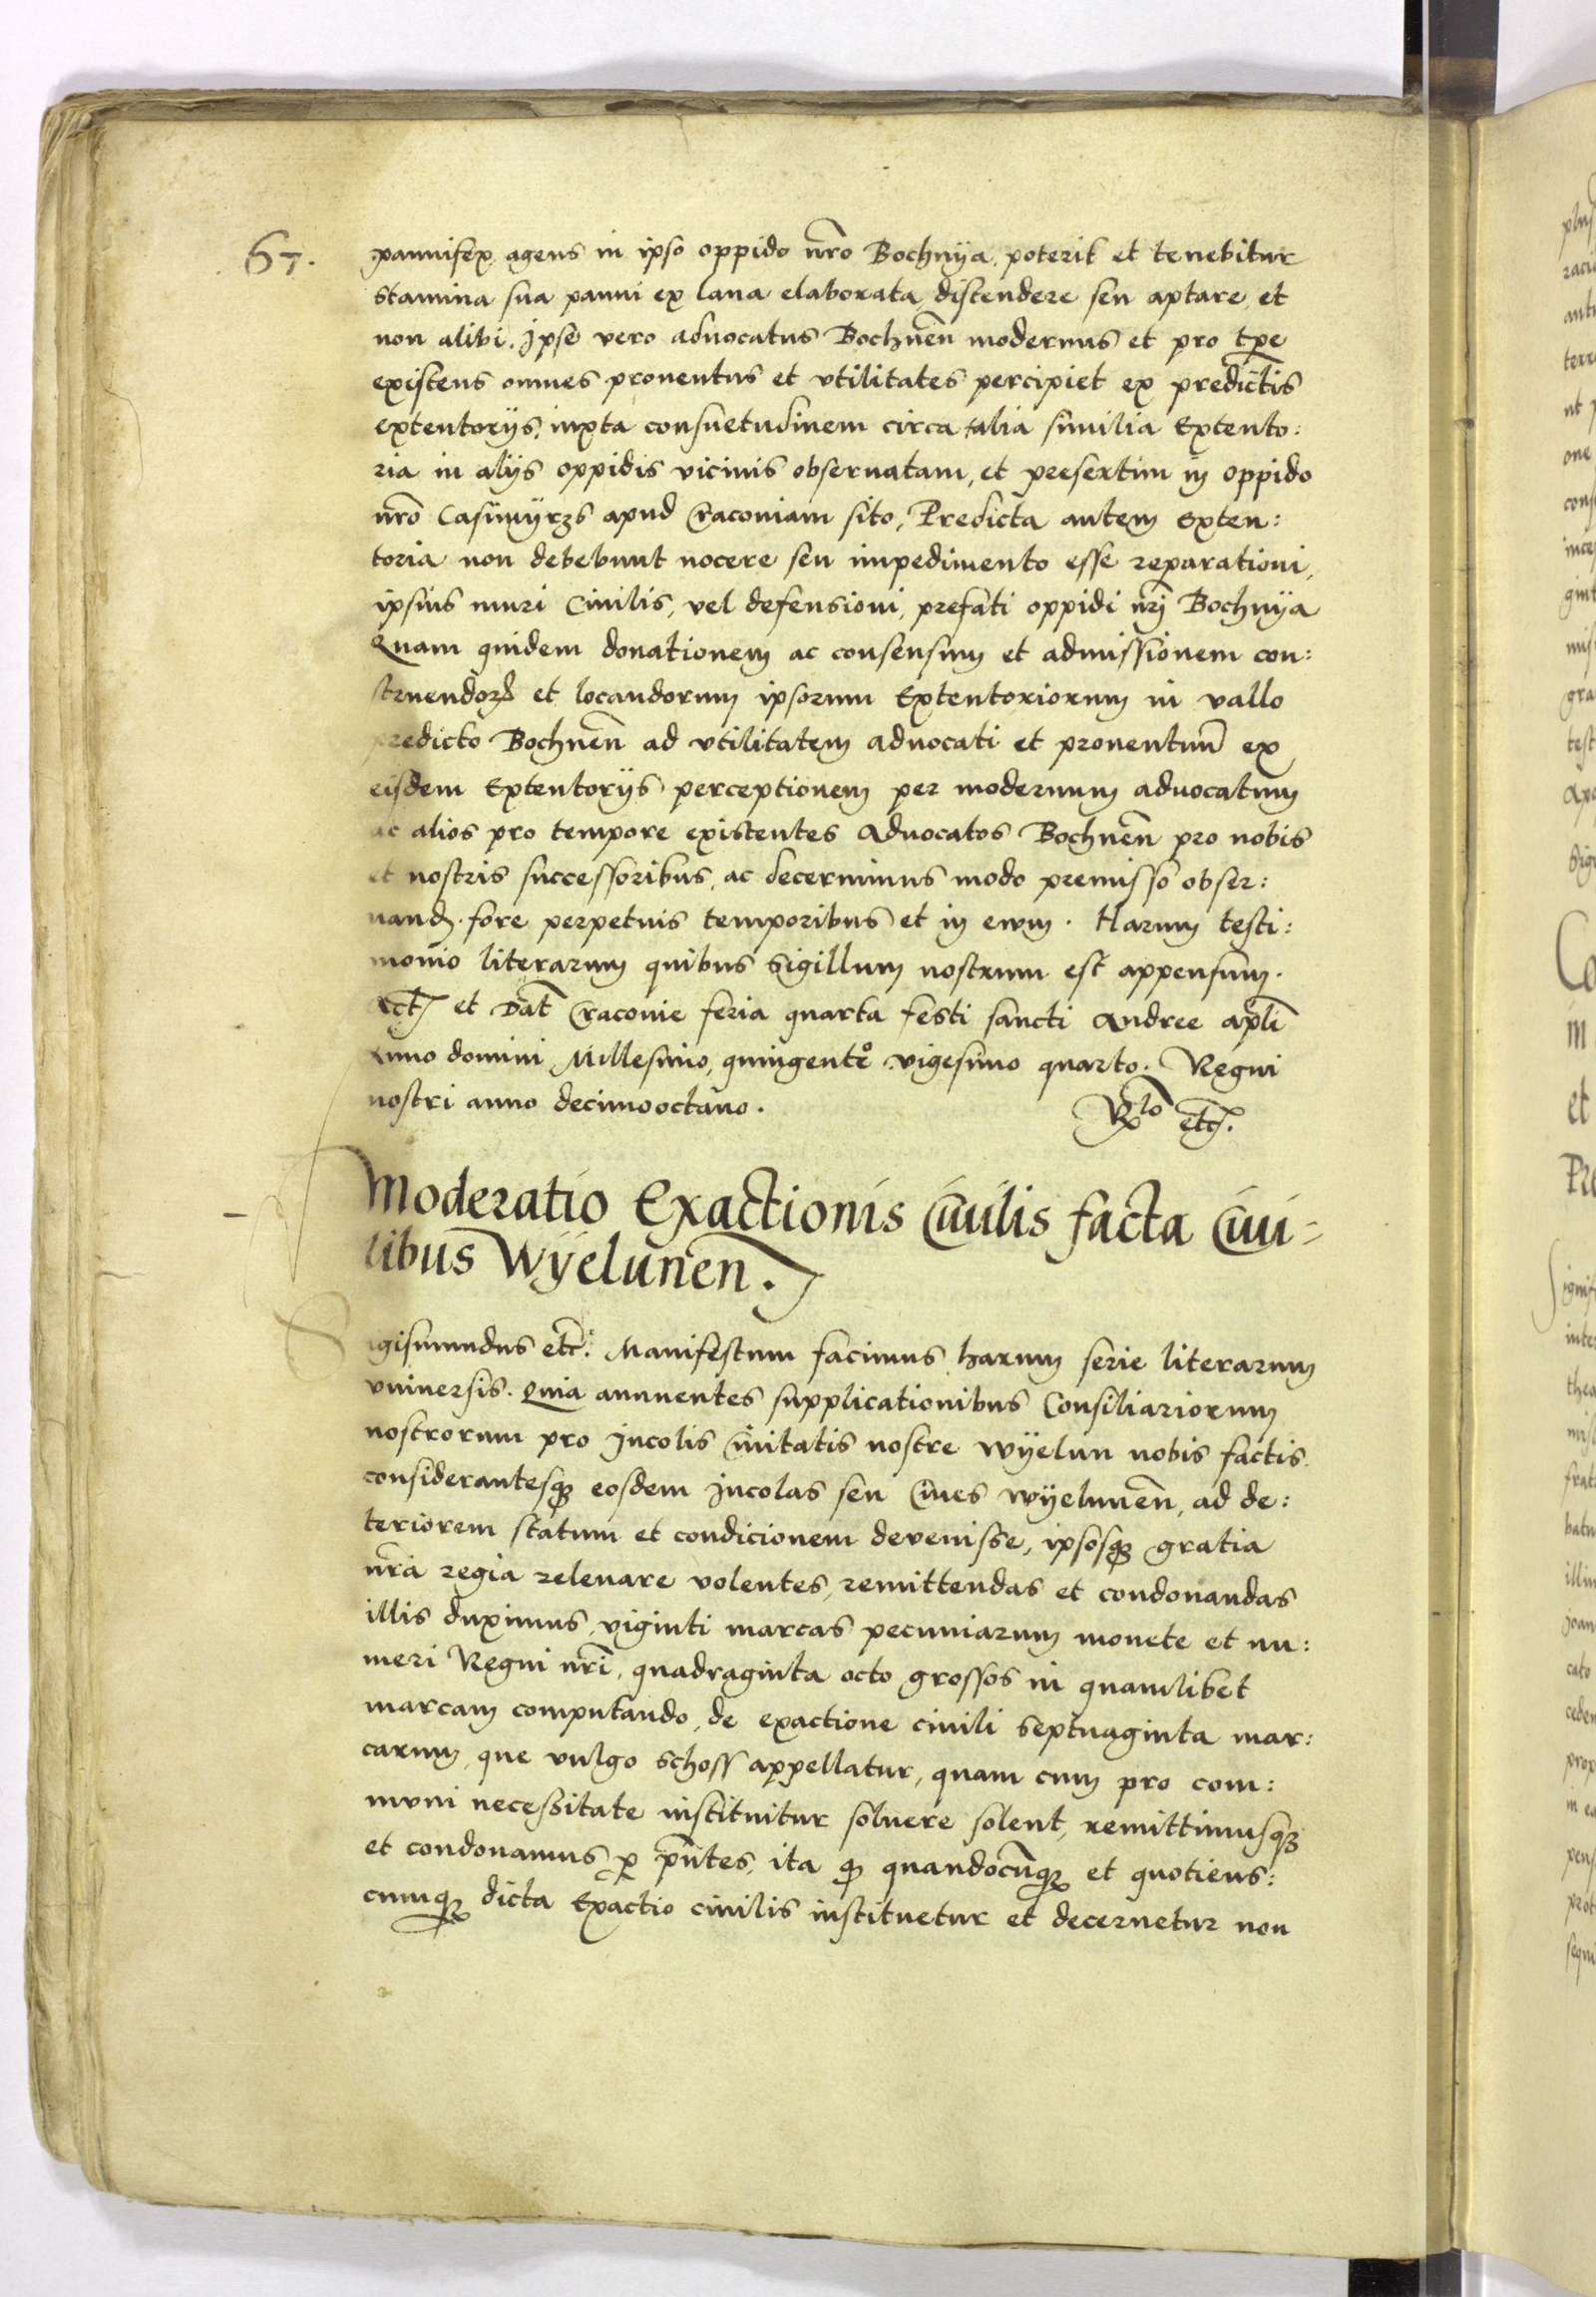 67.
pannifex agens in ipso oppido nr̃o Bochnÿa, poterit et tenebitur
stamina sua panni ex lana elaborata distendere seu aptare, et
non alibi. Ipse vero aduocatus Bochneñ modernus et pro tp̃e
existens omnes prouentus et vtilitates percipiet ex predictis
extentorÿs, iuxta consuetudinem circa talia similia Extento:
ria in alÿs oppidis vicinis obseruatam, et presertim in oppido
nr̃o Casimÿrzs apud Cracouiam sito, Predicta autem Exten:
toria non debebunt nocere seu impedimento esse reparationi,
ipsius muri Ciuilis, vel defensioni, prefati oppidi nr̃j Bochnÿa
Quam quidem donationem ac consensum et admissionem con:
struendorꝝ et locandorum ipsorum Extentoriorum in vallo
predicto Bochneñ ad vtilitatem aduocati et prouentuũ ex
eisdem Extentorÿs perceptionem per modernum aduocatum
ac alios pro tempore existentes Aduocatos Bochneñ pro nobis
et nostris successoribus, ac decernimus modo premisso obser:
uand. fore perpetuis temporibus et in ewm. Harum testi:
monio literarum quibus Sigillum nostrum est appensum.
Act et Dat̃ Cracouie feria quarta festi sancti Andree apl̃i
Anno domini Millesimo, quingentº vigesimo quarto. Regni
nostri anno decimooctauo.
Rᵉˡᵒ etc̃.
Moderatio Exactionis Ciuilis facta Ciui=
libus Wÿeluneñ.
Sigismundus etc̃. Manifestum facimus harum serie literarum
vniuersis. Quia annuentes supplicationibus Consiliariorum
nostrorum pro Incolis Ciuitatis nostre Wÿelun nobis factis.
considerantesqꝫ eosdem Incolas seu Ciues Wÿeluneñ, ad de:
teriorem statum et condicionem devenisse, ipsosqꝫ gratia
nr̃a regia releuare volentes, remittendas et condonandas
illis duximus, viginti marcas pecuniarum monete et nu:
meri Regni nr̃i, quadraginta octo grossos in quamlibet
marcam computando, de exactione ciuili septuaginta mar:
carum, que vulgo schoss appellatur, quam cum pro com:
mvni necessitate instituitur soluere solent, remittimusqꝫ
et condonamus ꝑ pñtes, ita ꝙ quandocũqꝫ et quotiens:
cumqꝫ dicta Exactio ciuilis instituetur et decernetur non